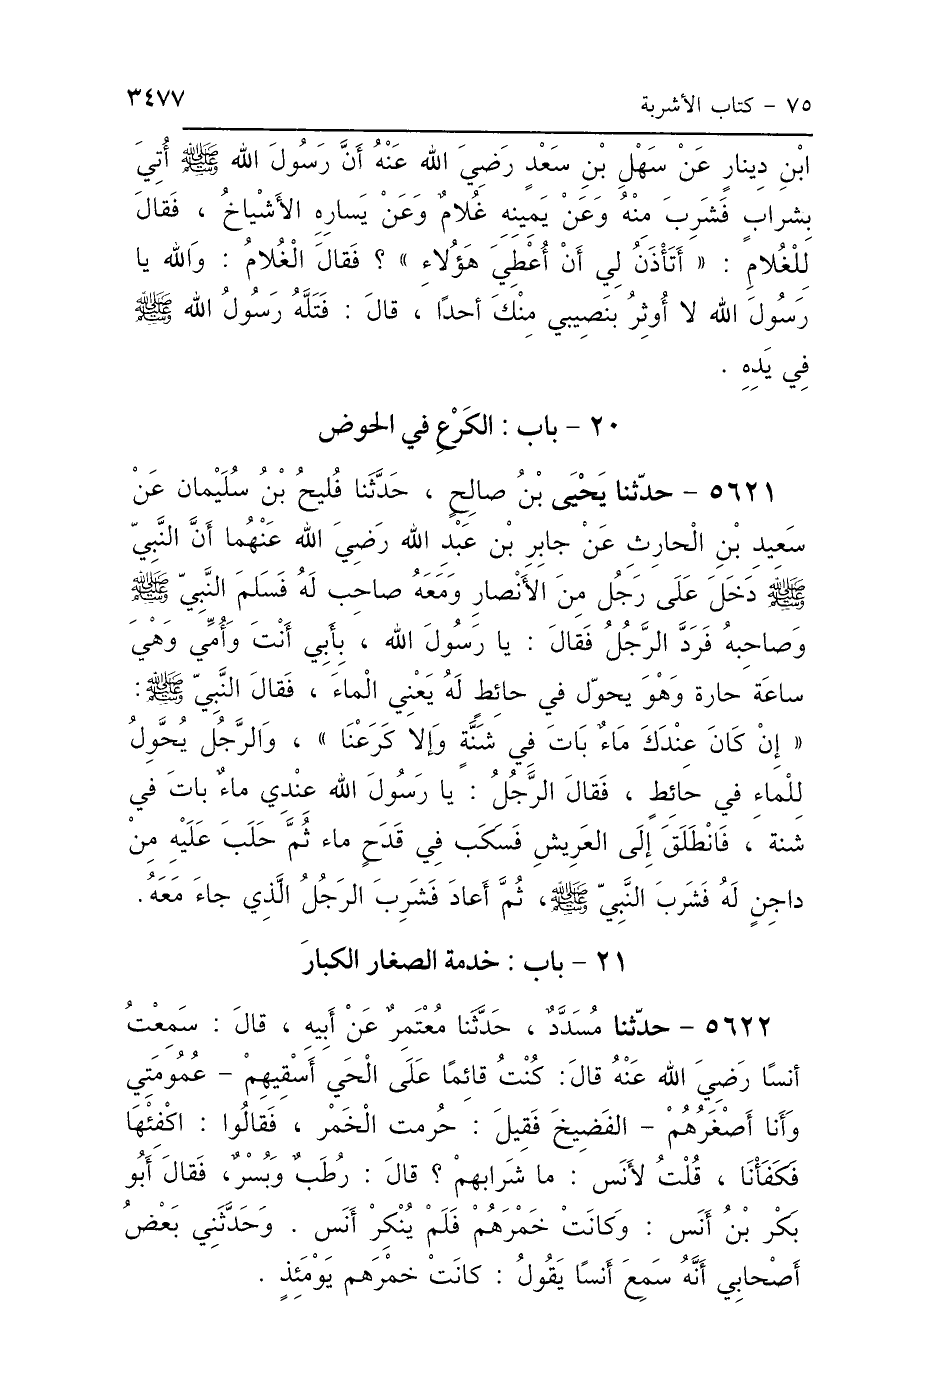 ٧٥ - كتاب الأشربة ٣٤٧٧
ابْنِ دِينارٍ عَنْ سَهْلِ بْنِ سَعْدٍ رَضِيَ الله عَنْهُ أَنَّ رَسُولَ الله ﷺ أُتِيَ
بِشرابٍ فَشَرِبَ مِنْهُ وَعَنْ يَمِينِهِ غُلامٌ وَعَنْ يَسارِهِ الأشْياخُ ، فَقالَ
لِلْغُلامِ : « أَتَأْذَنُ لِي أَنْ أُعْطِيَ هَؤُلاءِ » ؟ فَقالَ الْغُلامُ : وَالله يا
رَسُولَ الله لا أُوثِرُ بنَصِيبي مِنْكَ أحدًا ، قالَ : فَتَلَّهُ رَسُولُ الله ﷺ
فِي يَدِهِ .
٢٠ - باب : الكَرْعِ في الحوض
٥٦٢١ - حدّثنا يَحْيَى بْنُ صالِحٍ ، حَدَّثَنا فُلَيحُ بْنُ سُلَيْمان عَنْ
سَعِيدِ بْنِ الْحارِثِ عَنْ جابِرِ بْنِ عَبْدِ الله رَضِيَ الله عَنْهُما أَنَّ النَّبِيّ
ﷺ دَخَلَ عَلَى رَجُلٍ مِنَ الأَنْصارِ وَمَعَهُ صاحِب لَهُ فَسَلمَ النَّبِيّ ﷺ
وَصاحِبهُ فَرَدَّ الرَّجُلُ فَقالَ : يا رَسُولَ الله ، بِأَبِي أَنْتَ وَأُمِّي وَهْيَ
ساعَة حارة وَهْوَ يحوّل في حائطٍ لَهُ يَعْنِي الْماءَ ، فَقالَ النَّبِيّ ﷺ :
« إِنْ كَانَ عِنْدَكَ مَاءٌ بَاتَ فِي شَنَّةٍ وَإِلا كَرَعْنَا » ، وَالرَّجُل يُحَّولُ
لِلْماءِ فِي حائطٍ ، فَقالَ الرَّجُلُ : يا رَسُولَ الله عِنْدِي ماءٌ باتَ فِي
شنة ، فَانْطَلَقَ إِلَى العَرِيشِ فَسكَب فِي قَدَحٍ ماء ثُمَّ حَلَبَ عَلَيْهِ مِنْ
داجِنٍ لَهُ فَشَرِبَ النَّبِيّ ﷺ، ثُمَّ أَعادَ فَشَرِبَ الرَجُلُ الَّذِي جاءَ مَعَهُ.
٢١ - باب : خدمة الصغار الكبارَ
٥٦٢٢ - حدّثنا مُسَدَّدٌ ، حَدَّثَنا مُعْتَمِرٌ عَنْ أَبِيهِ ، قالَ : سَمِعْتُ
أنسًا رَضِيَ الله عَنْهُ قالَ: كُنْتُ قائمًا عَلَى الْحَي أَسْقِيهِمْ - عمُومَتِي
وَأَنا أَصْغَرُهُمْ - الفَضِيخَ فَقِيلَ : حُرمت الْخَمْر ، فَقالُوا : اكْفِئْهَا
فَكَفَأْنَا ، قُلْتُ لأَنَس : ما شَرابهمْ ؟ قالَ : رُطَبٌ وَبُسْرٌ، فَقالَ أَبُو
بَكْر بْنُ أَنَس : وَكانَتْ خَمْرَهُمْ فَلَمْ يُنْكِرْ أَنَس . وَحَدَّثَنِي بَعْضُ
أَصْحابِي أَنَّهُ سَمِعَ أَنسًا يَقُولُ : كانَتْ خمْرَهم يَوْمَئذٍ .